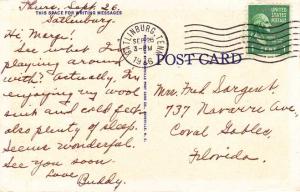 Thurs, Sept 26.
Gatlinburg.
THIS SPACE FOR WRITING MESSAGES
Hi Marge!
See what I'm
playing around
with? Actually, I'm
enjoying my wool
suit and cold feet,
also plenty of sleep.
Seems wonderful.
See you soon.
Love
Buddy.
GATLINBURG, TENN.
SEP 26
3-PM
1946
POST CARD
Mrs. Fred Sargent,
737 Navarre Ave.
Coral Gables,
Florida.